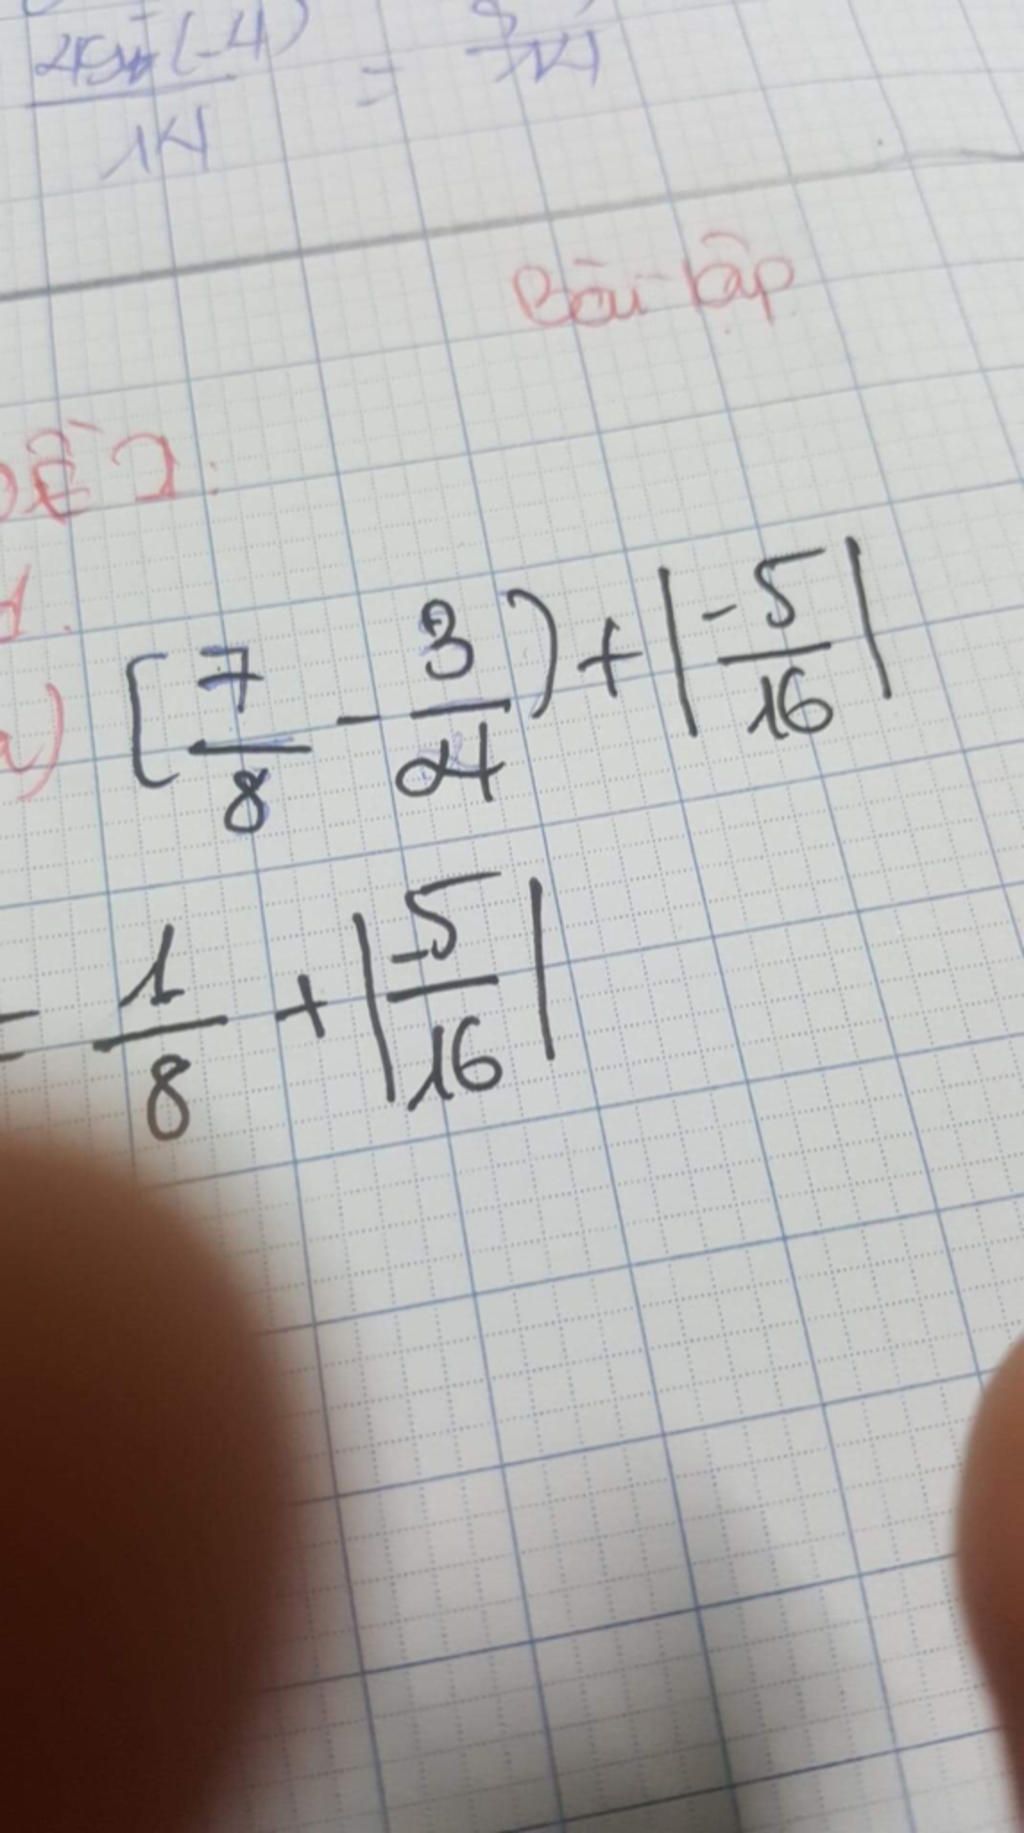 (-4)
14
=
Bài tập
ĐỀ 2:
1.
a) [7/8 - 3/4) + |-5/16|
= 1/8 + |-5/16|